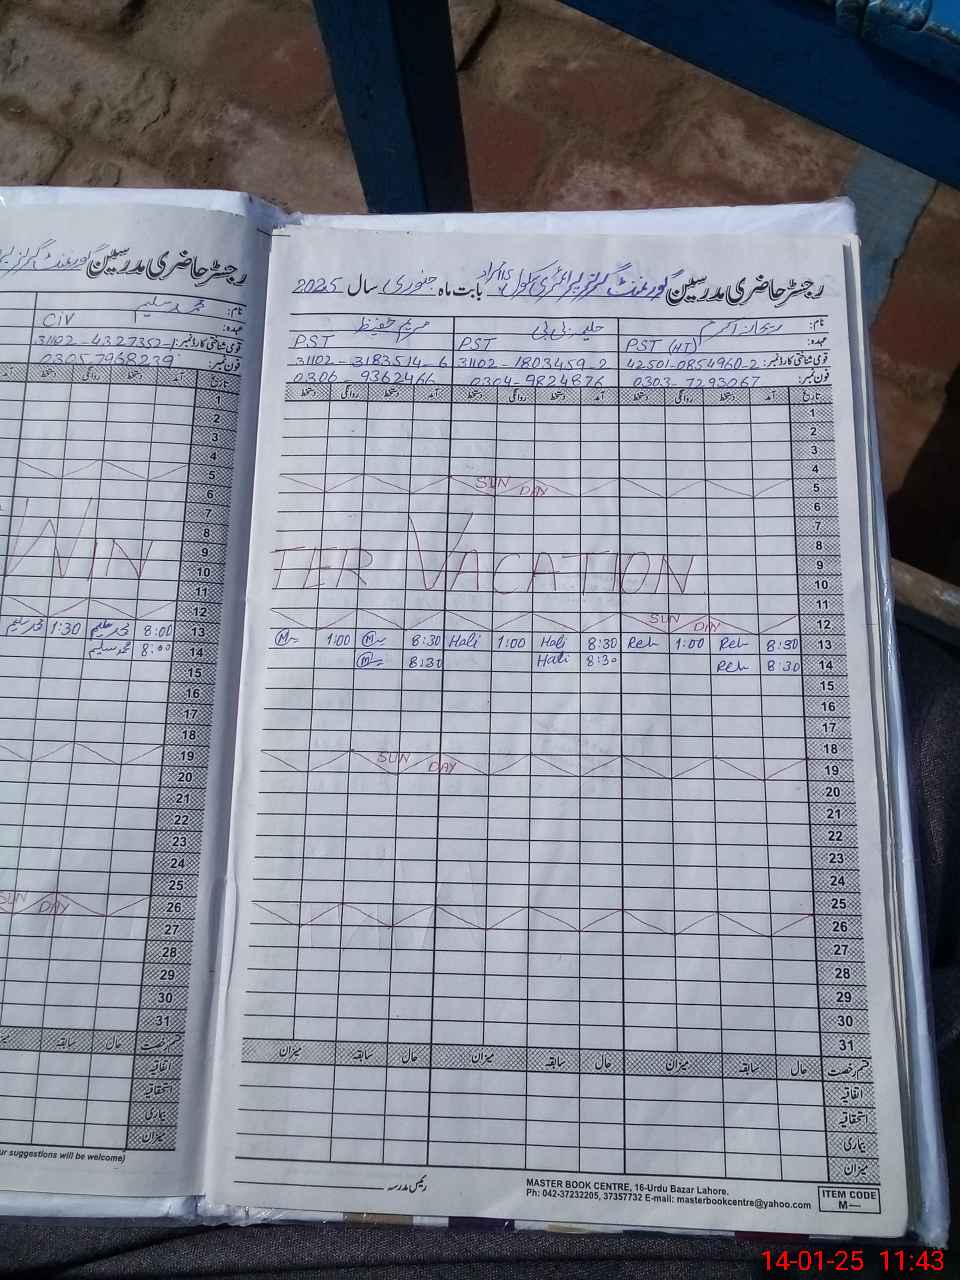 رجسٹر حاضری مدرسین گورنمنٹ گرلز پرائمری سکول بابت ماہ جنوری سال 2025
نام: ریحانہ اکرم حلیمہ بی بی مریم حفیظ
عہدہ: PST (HT) PST PST
قومی شناختی کارڈ نمبر: 42501-0854960-2 31102-1803459-2 31102-3183514-6
فون نمبر: 0303-7293267 0304-9824876 0306-9362466
تاریخ آمد دستخط روانگی دستخط آمد دستخط روانگی دستخط آمد دستخط روانگی دستخط
1
2
3
4
5 SUN DAY
6
7
8
9 TER VACATION
10
11
12 SUN DAY
13 8:30 Reh 1:00 Reh 8:30 Hali 1:00 Hali 8:30 M 1:00 M
14 8:30 Reh 8:30 Hali 8:30 M
15
16
17
18
19 SUN DAY
20
21
22
23
24
25
26
27
28
29
30
31
قسم رخصت حال سابقہ میزان حال سابقہ میزان حال سابقہ میزان
اتفاقیہ
استحقاقیہ
بیماری
میزان
رئیس مدرسہ
MASTER BOOK CENTRE, 16-Urdu Bazar Lahore.
Ph: 042-37232205, 37357732 E-mail: masterbookcentre@yahoo.com
ITEM CODE
M—
رجسٹر حاضری مدرسین گورنمنٹ گرلز
نام: محمد سلیم
عہدہ: CIV
قومی شناختی کارڈ نمبر: 31102-4327352-1
فون نمبر: 0305 7968239
تاریخ آمد دستخط روانگی دستخط
1
2
3
4
5
6
7
8
9 WIN
10
11
12
13 8:00 محمد سلیم 1:30 محمد سلیم
14 8:00 محمد سلیم
15
16
17
18
19
20
21
22
23
24
25
26 SUN DAY
27
28
29
30
31
قسم رخصت حال سابقہ میزان
اتفاقیہ
استحقاقیہ
بیماری
میزان
ur suggestions will be welcome)
14-01-25 11:43